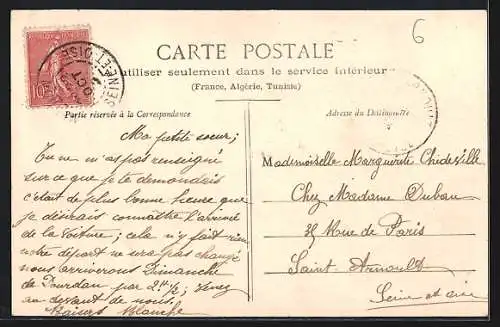 6
CARTE POSTALE
utiliser seulement dans le service intérieur
(France, Algérie, Tunisie)
Partie réservée à la Correspondance
Adresse du Destinataire
SEINE-ET-OISE
OCT
10
Ma petite soeur;
Tu ne m'as pas renseigné
sur ce que je te demandais
c'était de plus bonne heure que
je désirais connaître l'arrivée
de la voiture; cela n'y fait rien
notre départ ne sera pas changé
nous arriverons Dimanche
de Dourdan par 2h ½; venez
au devant de nous.
Baisers Blanche
Mademoiselle Marguerite
Chez Madame Duban
35 Rue de Paris
Saint Arnoult
Seine et Oise